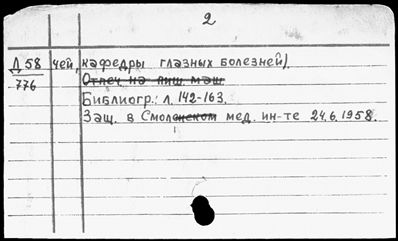 2
Д 58 чей, кафедры глазных болезней).
776 Отпеч на пиш маш
Библиогр.: л. 142-163.
Защ. в Смоленском мед. ин-те 24.6.1958.